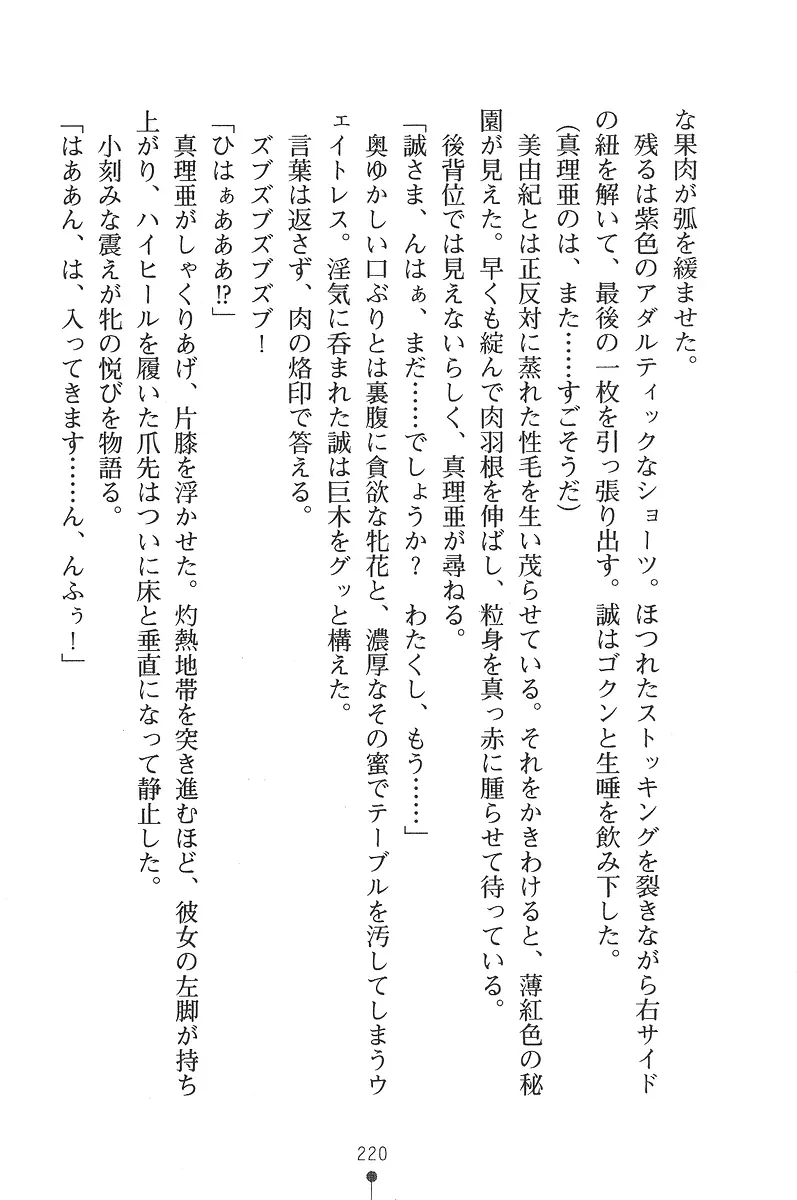 な果肉が弧を緩ませた。
　残るは紫色のアダルティックなショーツ。ほつれたストッキングを裂きながら右サイド
の紐を解いて、最後の一枚を引っ張り出す。誠はゴクンと生唾を飲み下した。
（真理亜のは、また……すごそうだ）
　美由紀とは正反対に蒸れた性毛を生い茂らせている。それをかきわけると、薄紅色の秘
園が見えた。早くも綻んで肉羽根を伸ばし、粒身を真っ赤に腫らせて待っている。
　後背位では見えないらしく、真理亜が尋ねる。
「誠さま、んはぁ、まだ……でしょうか？　わたくし、もう……」
　奥ゆかしい口ぶりとは裏腹に貪欲な牝花と、濃厚なその蜜でテーブルを汚してしまうウ
ェイトレス。淫気に呑まれた誠は巨木をグッと構えた。
　言葉は返さず、肉の烙印で答える。
　ズブズブズブズブ！
「ひはぁあああ!?」
　真理亜がしゃくりあげ、片膝を浮かせた。灼熱地帯を突き進むほど、彼女の左脚が持ち
上がり、ハイヒールを履いた爪先はついに床と垂直になって静止した。
　小刻みな震えが牝の悦びを物語る。
「はああん、は、入ってきます……ん、んふぅ！」
220